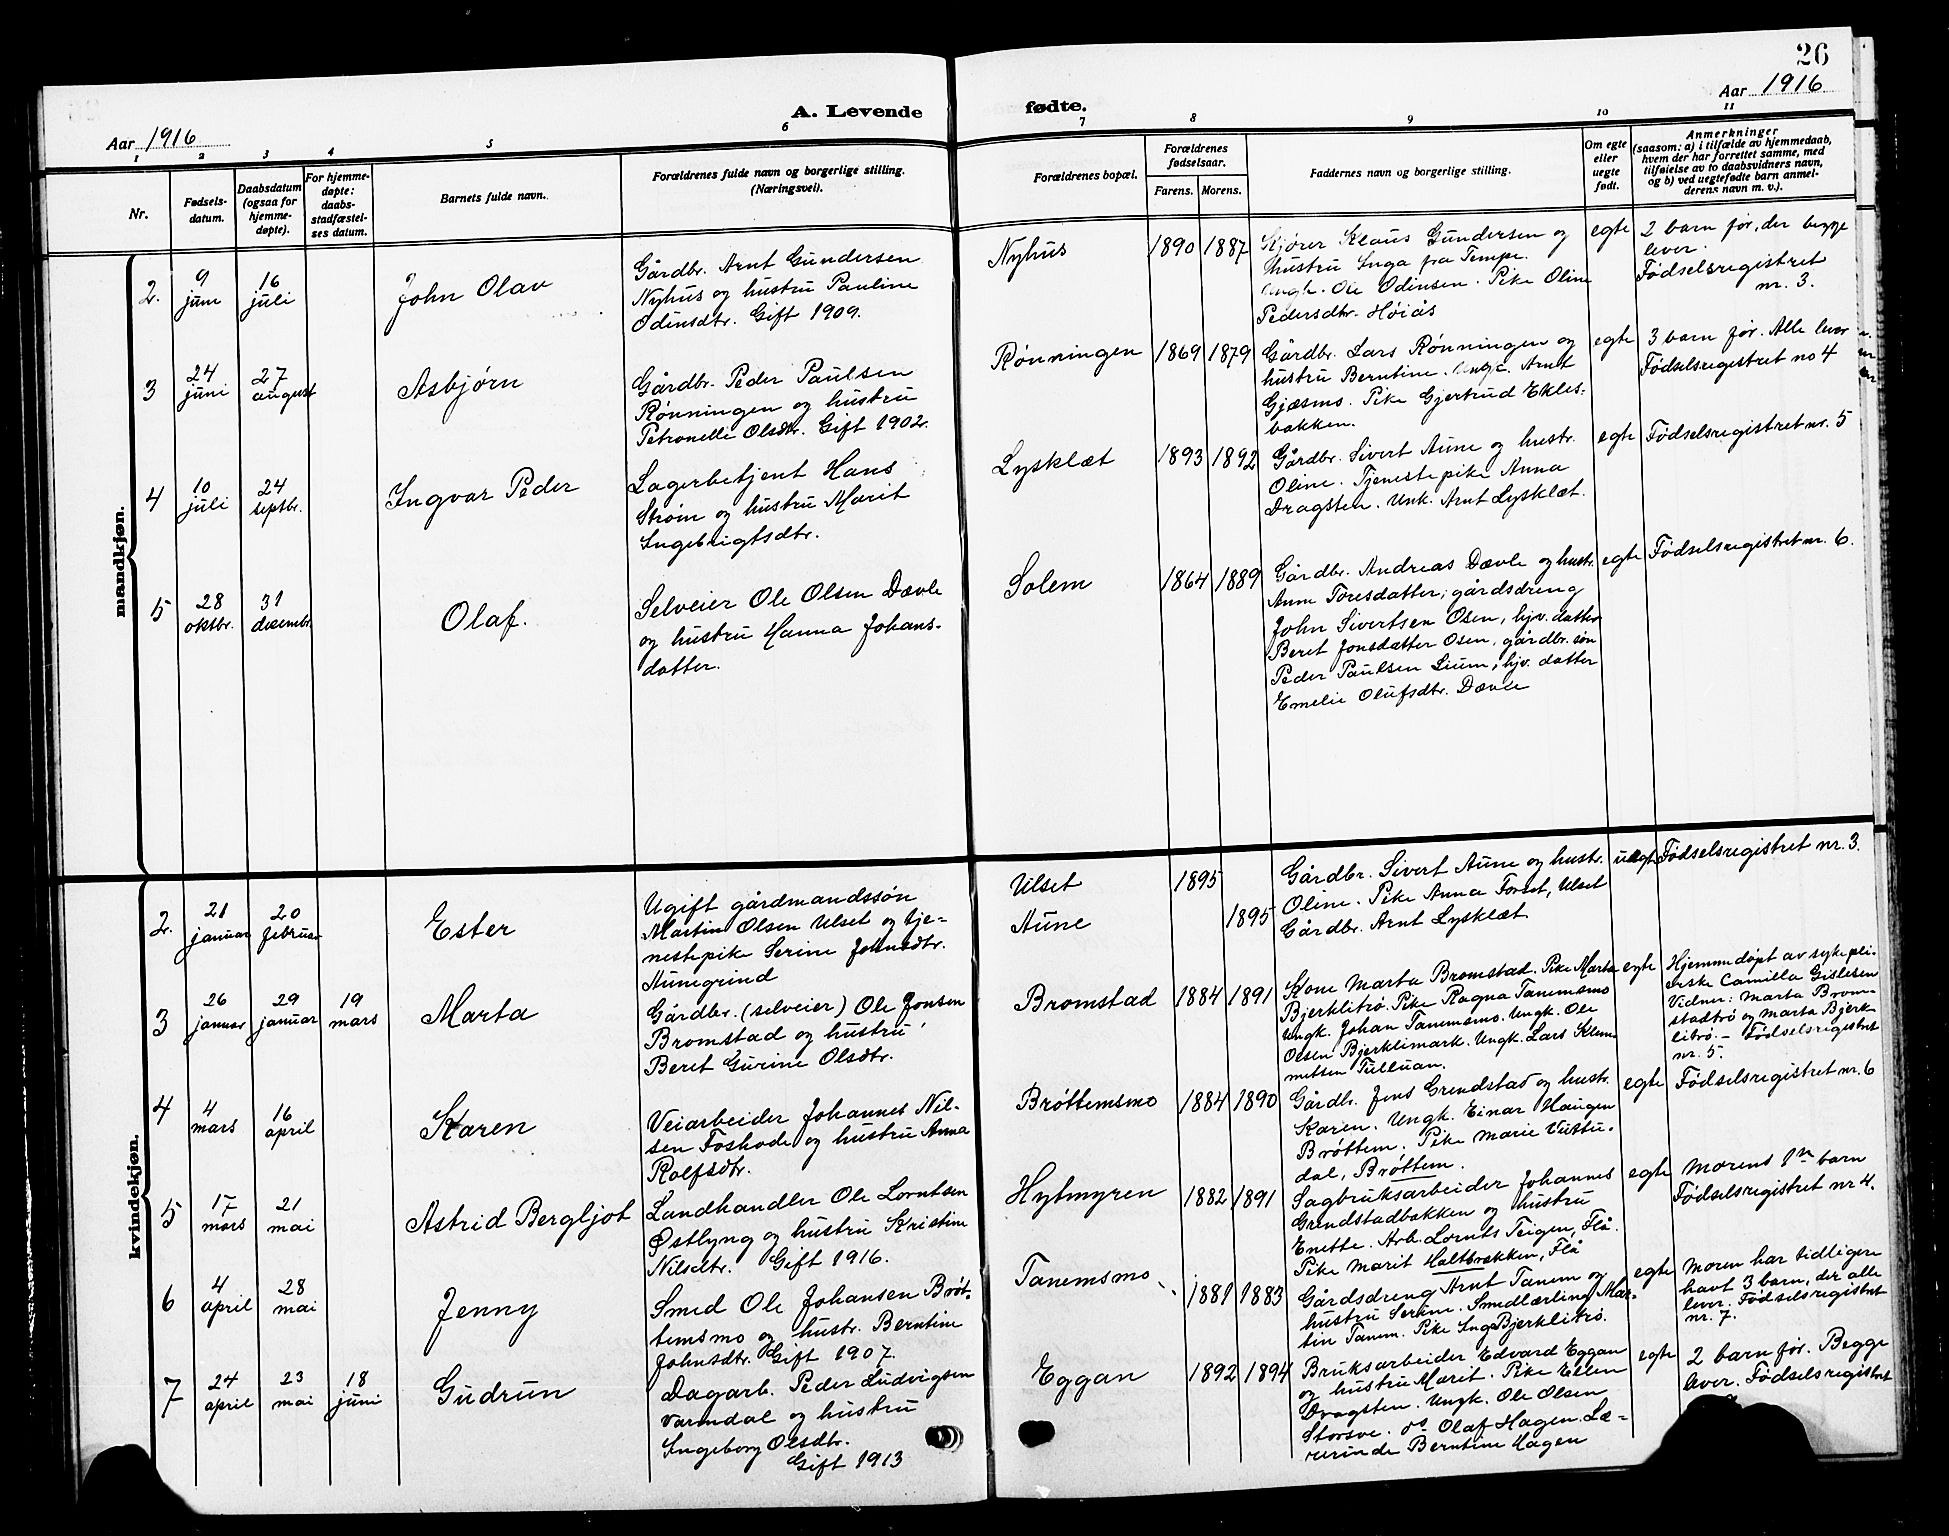 26
Aar 1916
A. Levende
fødte.
Aar 1916
1 2 3 4 5 6
7 8 9 10 11
Nr.
Fødsels-
datum.
Daabsdatum
(ogsaa for
hjemme-
døpte).
For hjemme-
døpte:
daabs-
stadfæstel-
ses datum.
Barnets fulde navn.
Forældrenes fulde navn og borgerlige stilling.
(Næringsvei).
Forældrenes bopæl.
Forældrenes
fødselsaar.
Farens. Morens.
Faddernes navn og borgerlige stilling.
Om egte
eller
uegte
født.
Anmerkninger
(saasom: a) i tilfælde av hjemmedaab,
hvem der har forrettet samme, med
tilføielse av to daabsvidners navn,
og b) ved uegtefødte barn anmel-
derens navn m. v.).
mandkjøn.
2. 9 juni
16 juli
John Olav
Gårdbr. Arnt Gundersen
Nyhus og hustru Pauline
Odinsdtr. Gift 1909.
Nyhus
1890 1887
Kjører Klaus Gundersen og
hustru Inga fra Tempe.
Ungk. Ole Odinsen. Pike Oline
Pedersdtr. Høiås
egte
2 barn før, der begge
lever.
Fødselsregistret
nr. 3.
3 24 juni
27 august
Asbjørn
Gårdbr. Peder Paulsen
Rønningen og hustru
Petronelle Olsdtr. Gift 1902.
Rønningen
1869 1879
Gårdbr. Lars Rønningen og
hustru Berntine. Ungk. Arnt
Gjæsmo. Pike Gjertrud Ekles-
bakken.
egte
3 barn før. Alle lever
Fødselsregistret no 4
4 10 juli
24 septbr.
Ingvar Peder
Lagerbetjent Hans
Strøm og hustru Marit
Ingebrigtsdtr.
Lysklæt
1893 1892
Gårdbr. Sivert Aune og hustr.
Oline. Tjenestepike Anna
Dragsten. Unk. Arnt Lysklæt.
egte
Fødselsregistret nr. 5
5 28 oktbr.
31 desembr.
Olaf.
Selveier Ole Olsen Dævle
og hustru Hanna Johans-
datter.
Solem
1864 1889
Gårdbr. Andreas Dævle og hustr.
Anne Toresdatter; gårdsdreng
John Sivertsen Osen, hjv. datter
Beret Jonsdatter Osen, gårdbr. søn
Peder Paulsen Lium; hjv. datter
Emelie Olufsdtr. Dævle
egte
Fødselsregistret nr. 6.
kvindekjøn.
2. 21 januar
20 februar
Ester
Ugift gårdmandssøn
Martin Olsen Ulset og tje-
nestepike Serine Johnsdtr.
Aunegrind
Ulset
Aune
1895
1895
Gårdbr. Sivert Aune og hustr.
Oline. Pike Anna Forset, Ulset
Gårdbr. Arnt Lysklæt
uegte
Fødselsregistret nr. 3.
3 26 januar
29 januar
19 mars
Marta
Gårdbr. (selveier) Ole Jonsen
Bromstad og hustru
Beret Gurine Olsdtr.
Bromstad
1884 1891
Kone Marta Bromstad. Pike Marta
Bjerklitrø. Pike Ragna Tanemsmo
Ungk. Johan Tanemsmo. Ungk. Ole
Olsen Bjerklimark. Ungk. Lars Klem-
metsen Tulluan.
egte
Hjemmedøpt av sykeplei-
erske Camilla Gislesen
Vidner: Marta Brom-
stadtrø og Marta Bjerk-
litrø. – Fødselsregistret
nr. 5.
4 4 mars
16 april
Karen
Veiarbeider Johannes Nil-
sen Foskode og hustru Anna
Rolfsdtr.
Brøttemsmo
1884 1890
Gårdbr. Jens Grendstad og hustr.
Karen. Ungk. Einar Haugen
Brøttem. Pike Marie Vuttu-
dal, Brøttem.
egte
Fødselsregistret nr. 6
5 17 mars
21 mai
Astrid Bergljot
Landhandler Ole Lorntsen
Østlyng og hustru Kristine
Nilsdtr. Gift 1916.
Hytmyren
1882 1891
Sagbruksarbeider Johannes
Grendstadbakken og hustru
Enette. Arb. Lornts Teigen, Flå.
Pike Marit Haltbrekken, Flå
egte
Morens 1ste barn
Fødselsregistret nr 4.
6 4 april
28 mai
Jenny
Smed Ole Johansen Brøt-
temsmo og hustr. Berntine
Johnsdtr. Gift 1907.
Tanemsmo
1881 1883
Gårdsdreng Arnt Tanem og
hustru Serine. Smedlærling Mar-
tin Tanem. Pike Inga Bjerklitrø.
egte
Moren har tidligere
havt 3 barn, der alle
lever. Fødselsregistret
nr. 7.
7 24 april
23 mai
18 juni
Gudrun
Dagarb. Peder Ludvigsen
Varmdal og hustru
Ingeborg Olsdtr.
Gift 1913
Eggan
1892 1894
Bruksarbeider Edvard Eggan
og hustru Marit. Pike Ellen
Dragsten. Ungk. Ole Olsen
Storsve. do Olaf Hagen. Læ-
rerinde Berntine Hagen
egte
2 barn før. Begge
lever. Fødselsregistret